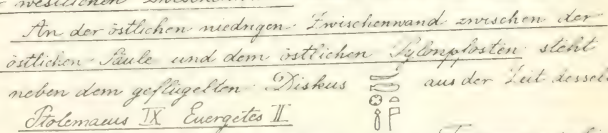 westlichen Zwischen
An der östlichen niedrigen Zwischenwand zwischen der
östlichen Säule und dem östlichen Pylonpfosten steht
neben dem geflügelten Diskus aus der Zeit dessel
Ptolemaeus IX Euergetes II